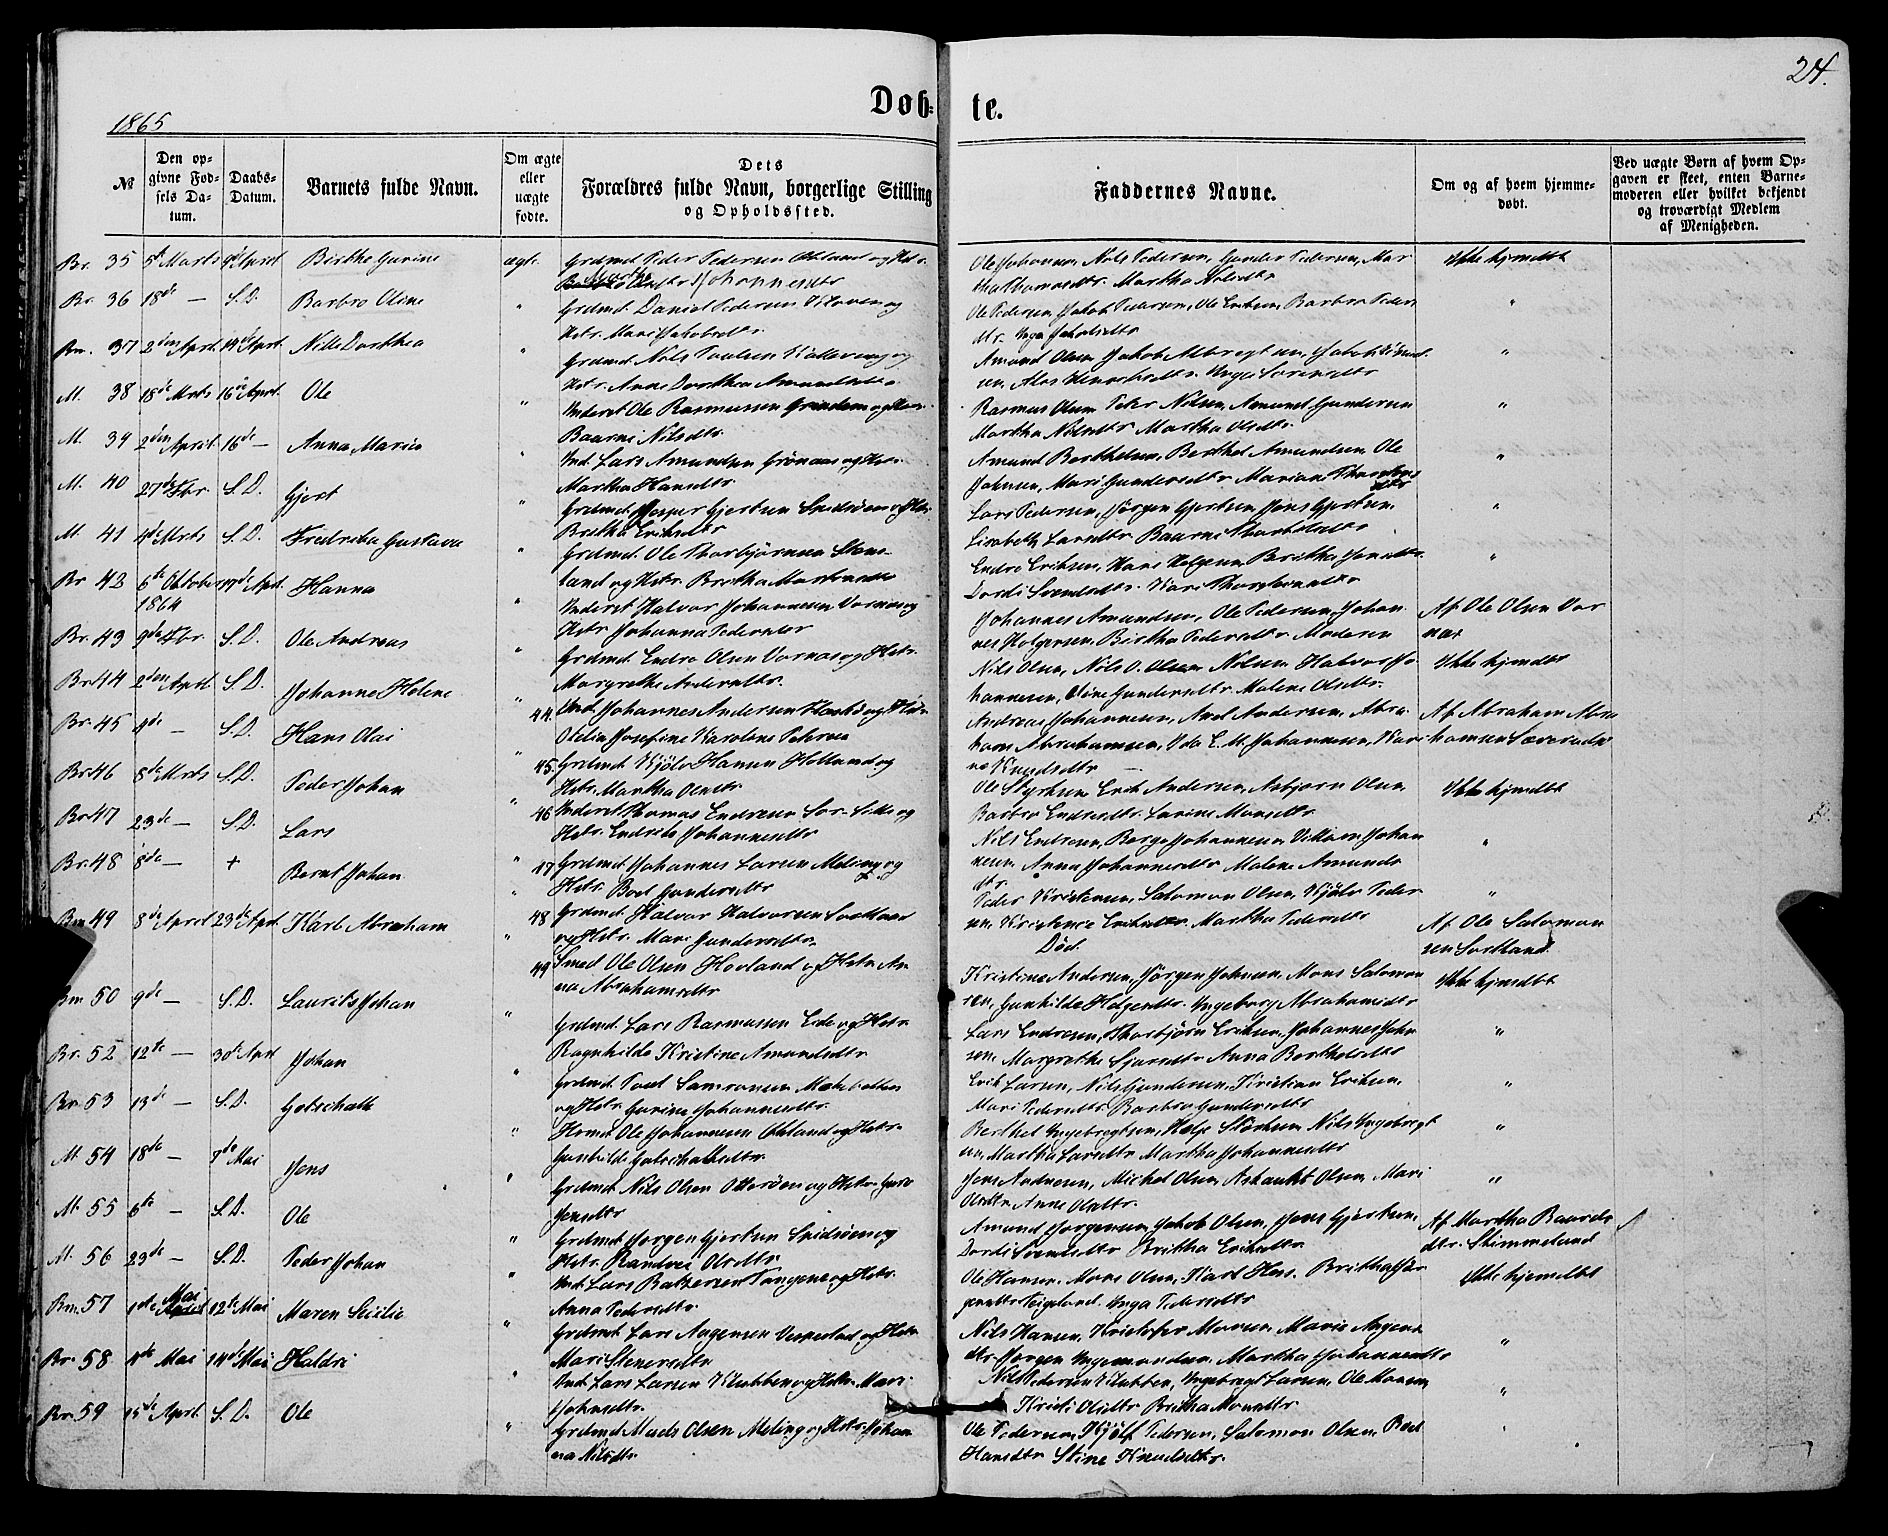 24.
Døb-
te.
1865
№
Den op-
givne Fød-
sels Da-
tum.
Daabs-
Datum.
Barnets fulde Navn.
Om ægte
eller
uægte
fødte.
Dets
Forældres fulde Navn, borgerlige Stilling
og Opholdssted.
Faddernes Navne.
Om og af hvem hjemme-
døbt.
Ved uægte Børn af hvem Op-
gaven er skeet, enten Barne-
moderen eller hvilket bekjendt
og troværdigt Medlem
af Menigheden.
Br. 35 5te Marts Birthe Gurine ægte Grdmd. Peder Pedersen og Hstr.
Johannesdtr
Ole Johannesen, Nils Pedersen, Gunder Pedersen, Mar
tha Thomasdtr. Martha Nilsdtr
Ikke hjmdbt
Br. 36 18de — S.D. Barbro Oline " Grdmd. Daniel Pedersen og
Hstr. Mari Jakobsdtr.
Ole Pedersen, Jakob Pedersen, Ole Eriksen, Barbro Peders
dtr. Inga Jakobsdtr
"
Bm. 37 2den April. 14de April. Nille Dorthea " Grdmd. Nils Poulsen og
Hstr. Anne Dorthea Amundsdtr.
Amund Olsen, Jakob Albregtsen, Jakob
sen,
"
M. 38 18de Mrts 16de April. Ole " Inderst Ole Rasmussen Grindem og Hstr.
Baarni Nilsdtr.
Rasmus Olsen, Peter Nilsen, Amund Gundersen
Martha Nilsdtr Martha Olsdtr.
"
M. 39 2den April 16de — Anna Maria " Ind. Lars Amundsen Grønaas og Hstr.
Martha Hansdtr.
Amund Berthelsen, Berthel Amundsen, Ole
Johnsen, Mari Gundersdtr Mariane
dtr
"
M. 40 27de Fbr. S.D. Gjert " Grdmd. Kasper Gjertsen og Hstr.
Britha Eriksdtr
Lars Pedersen, Jørgen Gjertsen, Jens Gjertsen,
Lisabeth Larsdtr. Baarni
"
M. 41 4de Mrts S.D. Fredrika Gustava " Grdmd. Ole Thorbjørnsen Stens-
land og Hstr. Britha
Endre Eriksen, Hans Helgesen, Britha Jensdtr.
Dordi Svendsdtr. Kari
"
Br. 42 6te Oktober 17de April. Hanna
1864
" Inderst Halvor Johannesen Vornes og
Hstr. Johanna Pedersdtr
Johannes Amundsen, Ole Pedersen, Johan
nes Holgersen, Birtha Pedersdtr. Moderen
Af Ole Olsen Vor
næs
Br. 43 9de Fbr. S.D. Ole Andreas " Grdmd. Endre Olsen Vornes og Hstr.
Margrethe Andersdtr.
Nils Olsen, Nils O. Olsen Nilsen, Halvor Jo
hannesen, Oline Gundersdtr. Malene Olsdtr.
Ikke hjmdbt
Br. 44 2den April S.D. Johanne Helene " 44. Ind. Johannes Andersen og Hstr.
Otelia Josefine Karoline Petersen
Andreas Johannesen, Axel Andersen, Abra
ham Abrahamsen, Ida E. M. Johannesen, Kari
ne Knudsdtr —
Af Abraham Abra
hamsen
Br. 45 4de — S.D. Hans Olai " 45. Grdmd. Kjølv Hansen Holland og
Hstr. Martha Olsdtr.
Ole Styrksen, Erik Andersen, Asbjørn Olsen,
Barbro Endresdtr. Larine Monsdtr.
Ikke hjmdbt
Br. 46 8de Mrts S.D. Peder Johan " 46 Inderst Thomas Endresen og
Hstr. Endreta Johannesdtr
Nils Endresen, Børge Johannesen, Villum Johan
nesen, Anna Johannesdtr Malene Amunds
dtr.
"
Br. 47 23de — S.D. Lars " 47 Grdmd. Johannes Larsen Meling og
Hstr. Boel Gundersdtr
Peder Kristensen, Salomon Olsen, Kjølv Peder
sen, Kristense Martha Pedersdtr
"
Br. 48 8de — + Bernt Johan " 48 Grdmd. Halvor Halvorsen Sortland
og Hstr. Mari Gundersdtr.
Død.
Af Ole Salomon
sen Sortland.
Bm 49 8de April 23de April. Karl Abraham " 49 Smed Ole Olsen Hovland og Hstr. An
na Abrahamsdtr
Kristine Andersen, Jørgen Johnsen, Mons Salomon
sen, Gunhilde Helgesdtr. Ingeborg Abrahamsdtr
Ikke hjmdbt
Bm 50 9de — S.D. Laurits Johan " Grdmd. Lars Rasmussen Eide og Hstr.
Ragnhilde Kristine Amundsdtr.
Lars Endresen, Thorbjørn Eriksen, Johannes John
sen, Margrethe Anna Bertheledtr
"
Br. 52 12te — 30te April Johan " Grdmd. Poul Samsonsen
og Hstr. Gurine Johannesdtr.
Erik Larsen, Nils Gundersen, Kristian Eriksen,
Mari Pedersdtr. Barbro Gundersdtr
"
Br. 53 13de — S.D. Gotschalk " Hrmd. Ole Johannesen og Hstr.
Gunhilde Gotschalksdtr.
Berthel Ingebregtsen, Helge Størksen, Nils Ingebregt
sen, Martha Larsdtr Martha Johannesdtr
"
M. 54 18de — 7de Mai Jens " Grdmd. Nils Olsen Otterøen og Hstr. Guro
Jensdtr
Jens Andresen, Michel Olsen, Olsen, Mari
Olsdtr. Anne Olsdtr.
"
M. 55 6te — S.D. Ole " Grdmd. Jørgen Gjertsen og
Hstr. Randvei Olsdtr.
Amund Jørgensen, Jakob Olsen, Jens Gjertsen,
Dordi Svendsdtr Britha Eriksdtr.
Af Martha Baards
dtr. Skimmeland
M. 56 23de — S.D. Peder Johan " Ind. Lars Baltzersen Tangene og Hstr.
Anna Pedersdtr.
Ole Hansen, Mons Olsen, Karl Hess. Britha Jør
gensdtr Teigeland. Inga Pedersdtr
Ikke hjemdbt
Bm. 57 1ste Mai 12te Mai Maren Secilie " Grdmd. Lars Aagesen Vespestad og Hstr.
Mari Stenersdtr
Nils Hansen, Kristofer Monsen, Marie Aagens
dtr. Jørgen Ingemundsen, Martha Johannesdtr
"
Br. 58 4de Mai 14de Mai Haldri " Ind. Lars Larsen Klubben og Hstr. Mari
Johnsdtr.
Nils Pedersen Klubben, Ingebregt Larsen, Ole Monsen,
Kristi Olsdtr Britha Monsdtr.
"
Br. 59 15de April. S.D. Ole " Grdmd. Mads Olsen Meling og Hstr. Johan
na Nilsdtr.
Ole Pedersen, Kjølf Pedersen, Salomon Olsen, Boel
Hansdtr Stine Knudsdtr.